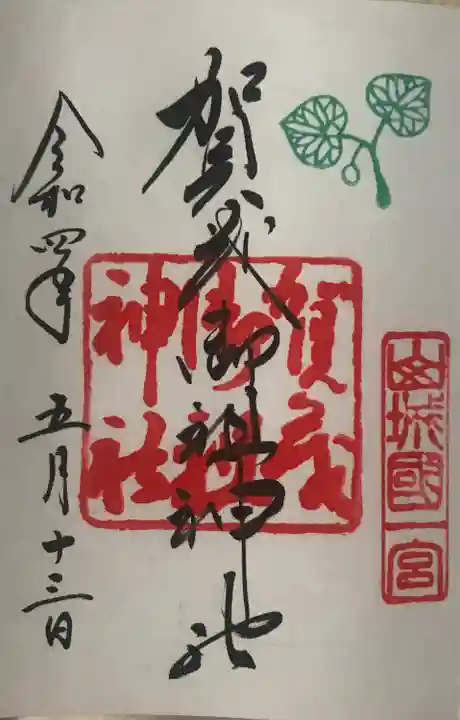 山城國一宮
賀茂御祖神社
賀茂御祖神社
令和四年 五月十三日